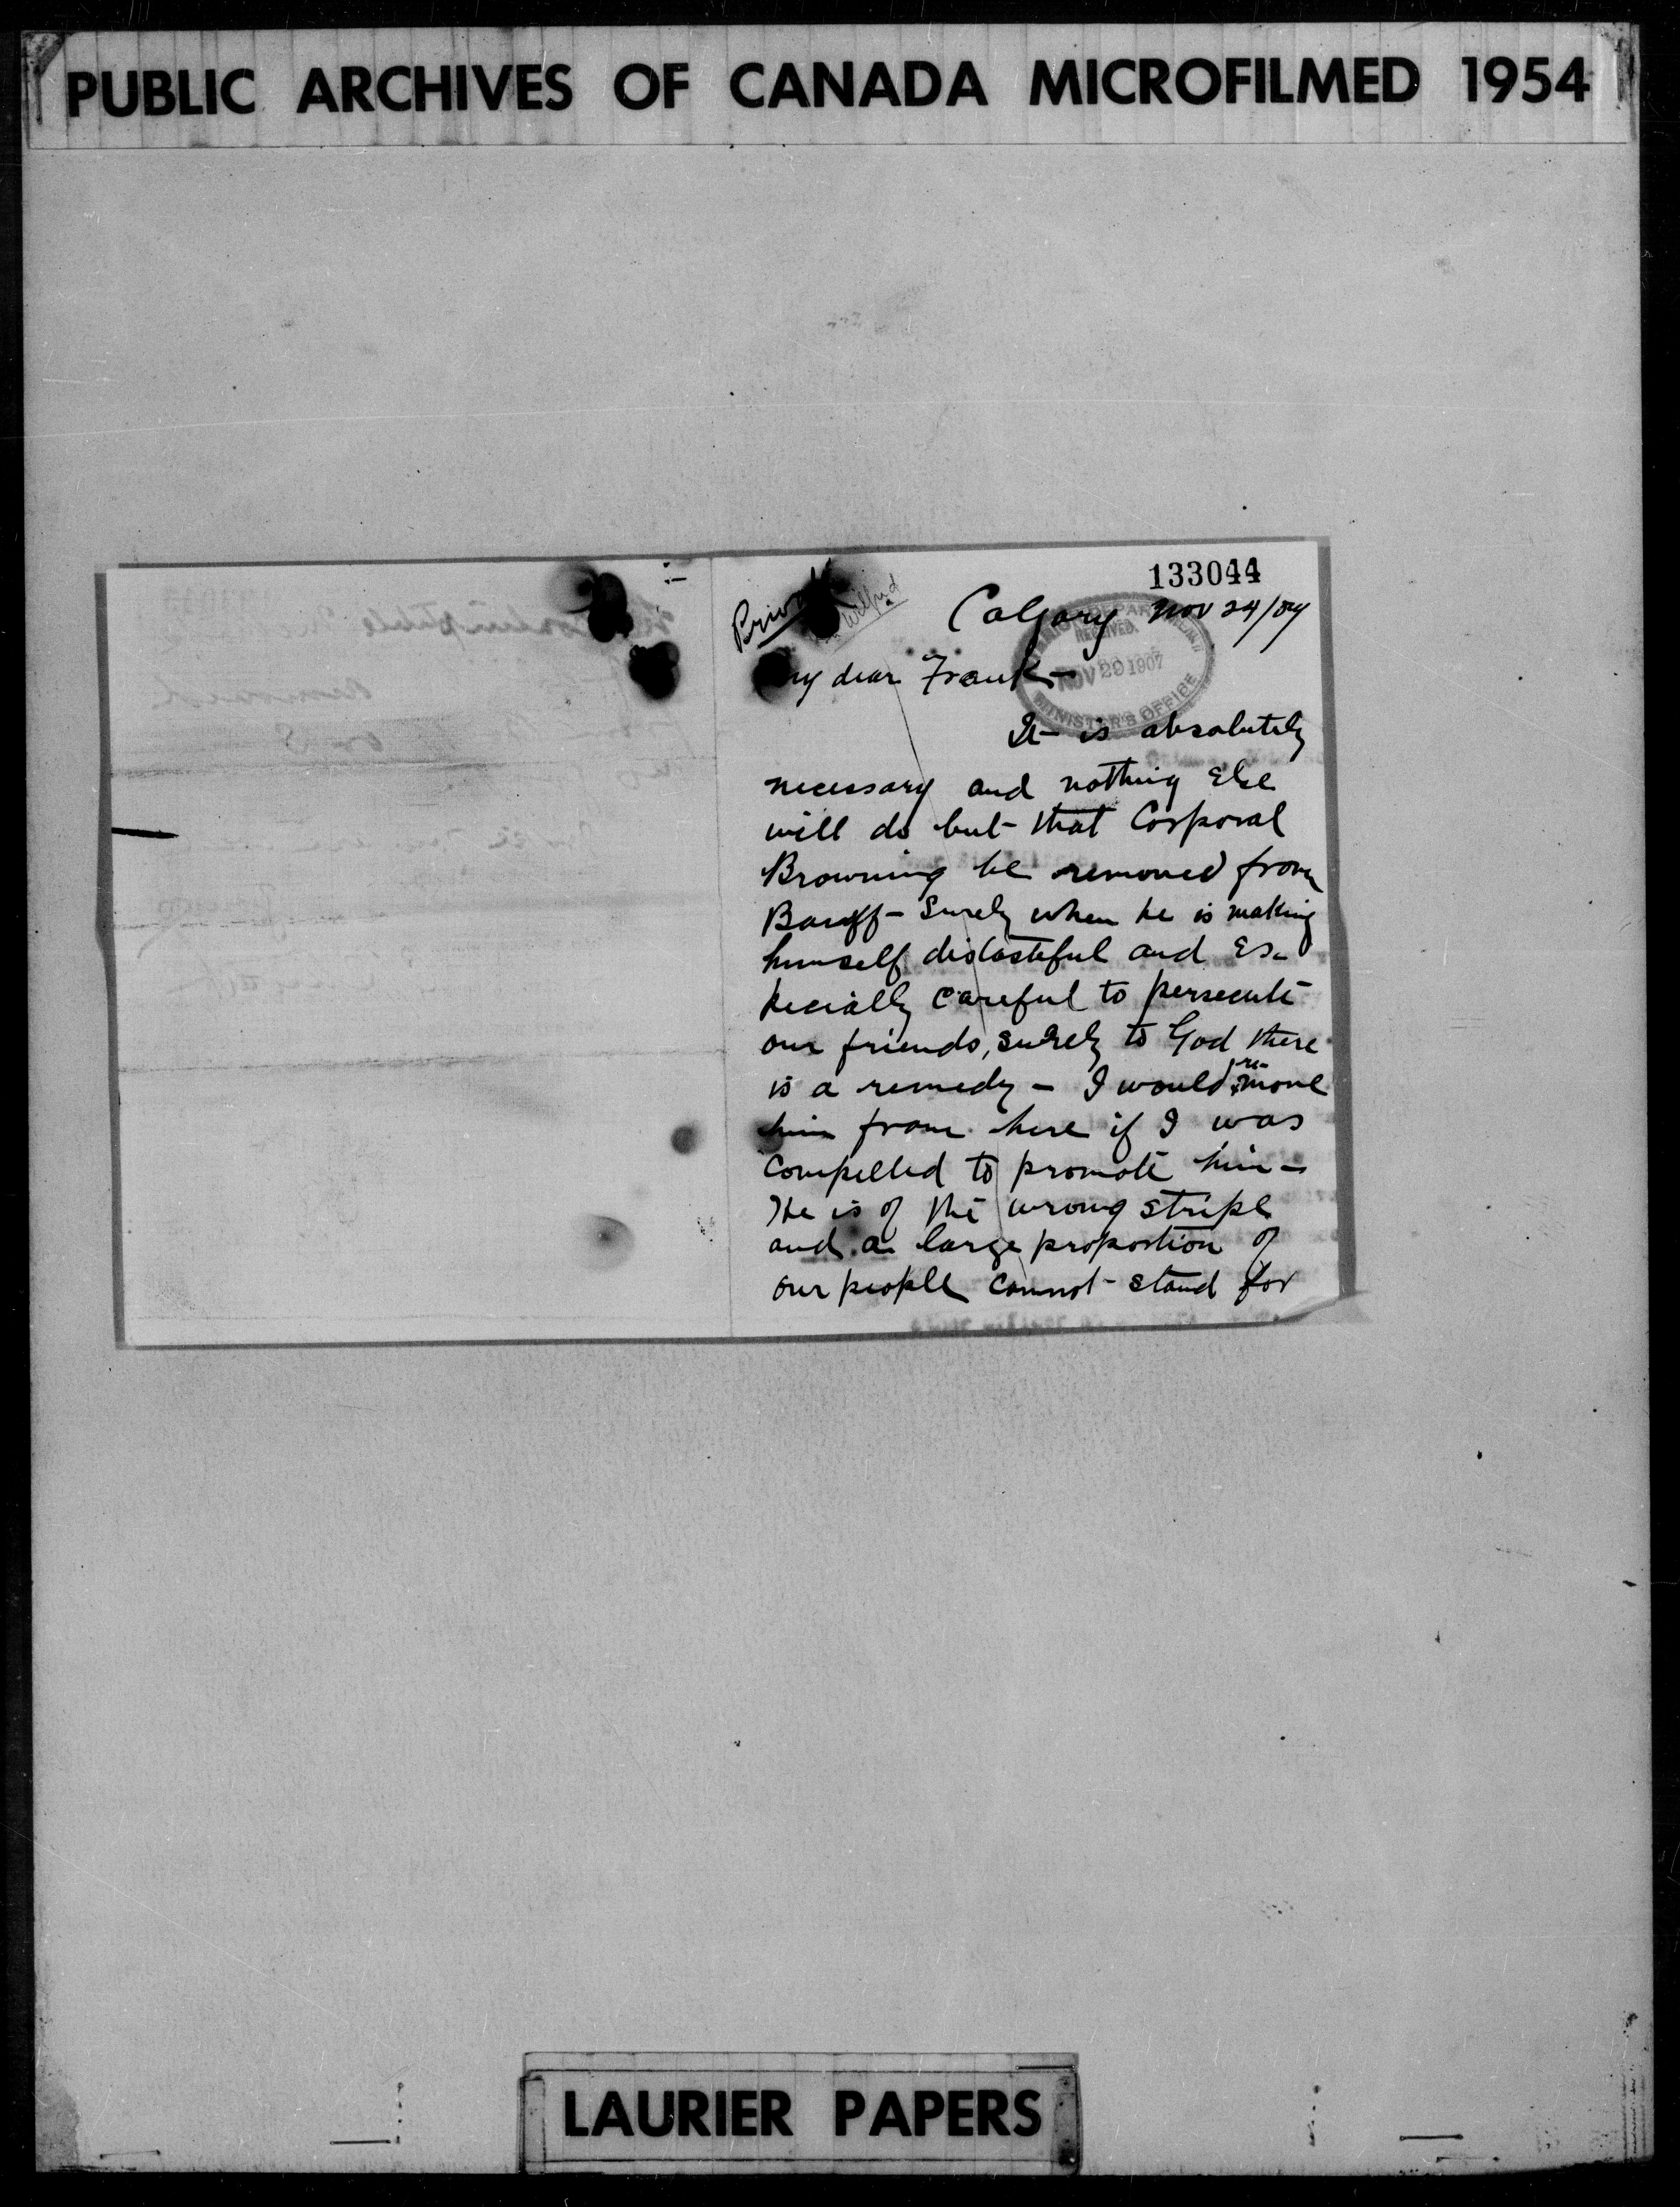 PUBLIC ARCHIVES OF CANADA MICROFILMED 1954
133044
Wilfrid
Calgary Nov 24/07
RECEIVED
NOV 29 1907
MINISTER'S OFFICE
My dear Frank -
It is absolutely
necessary and nothing else
will do but that Corporal
Browning be removed from
Banff - Surely when he is making
himself distasteful and es-
pecially careful to persecute
our friends, surely to God there
is a remedy - I would re-move
him from here if I was
compelled to promote him -
He is of the wrong stripe
and a large proportion of
our people cannot stand for
LAURIER PAPERS